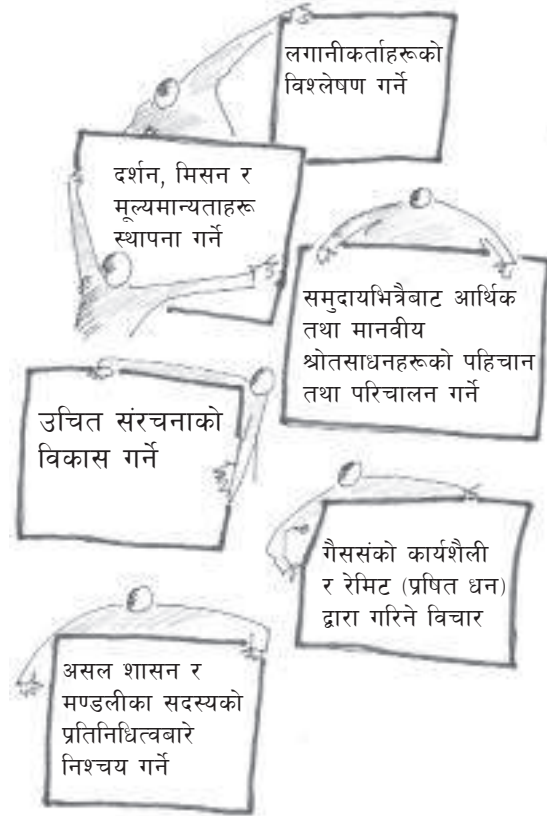 लगानीकर्ताहरूको
विश्लेषण गर्ने
दर्शन, मिसन र
मूल्यमान्यताहरू
स्थापना गर्ने
समुदायभित्रैबाट आर्थिक
तथा मानवीय
श्रोतसाधनहरूको पहिचान
तथा परिचालन गर्ने
उचित संरचनाको
विकास गर्ने
गैससंको कार्यशैली
र रेमिट (प्रषित धन)
द्वारा गरिने विचार
असल शासन र
मण्डलीका सदस्यको
प्रतिनिधित्वबारे
निश्चय गर्ने